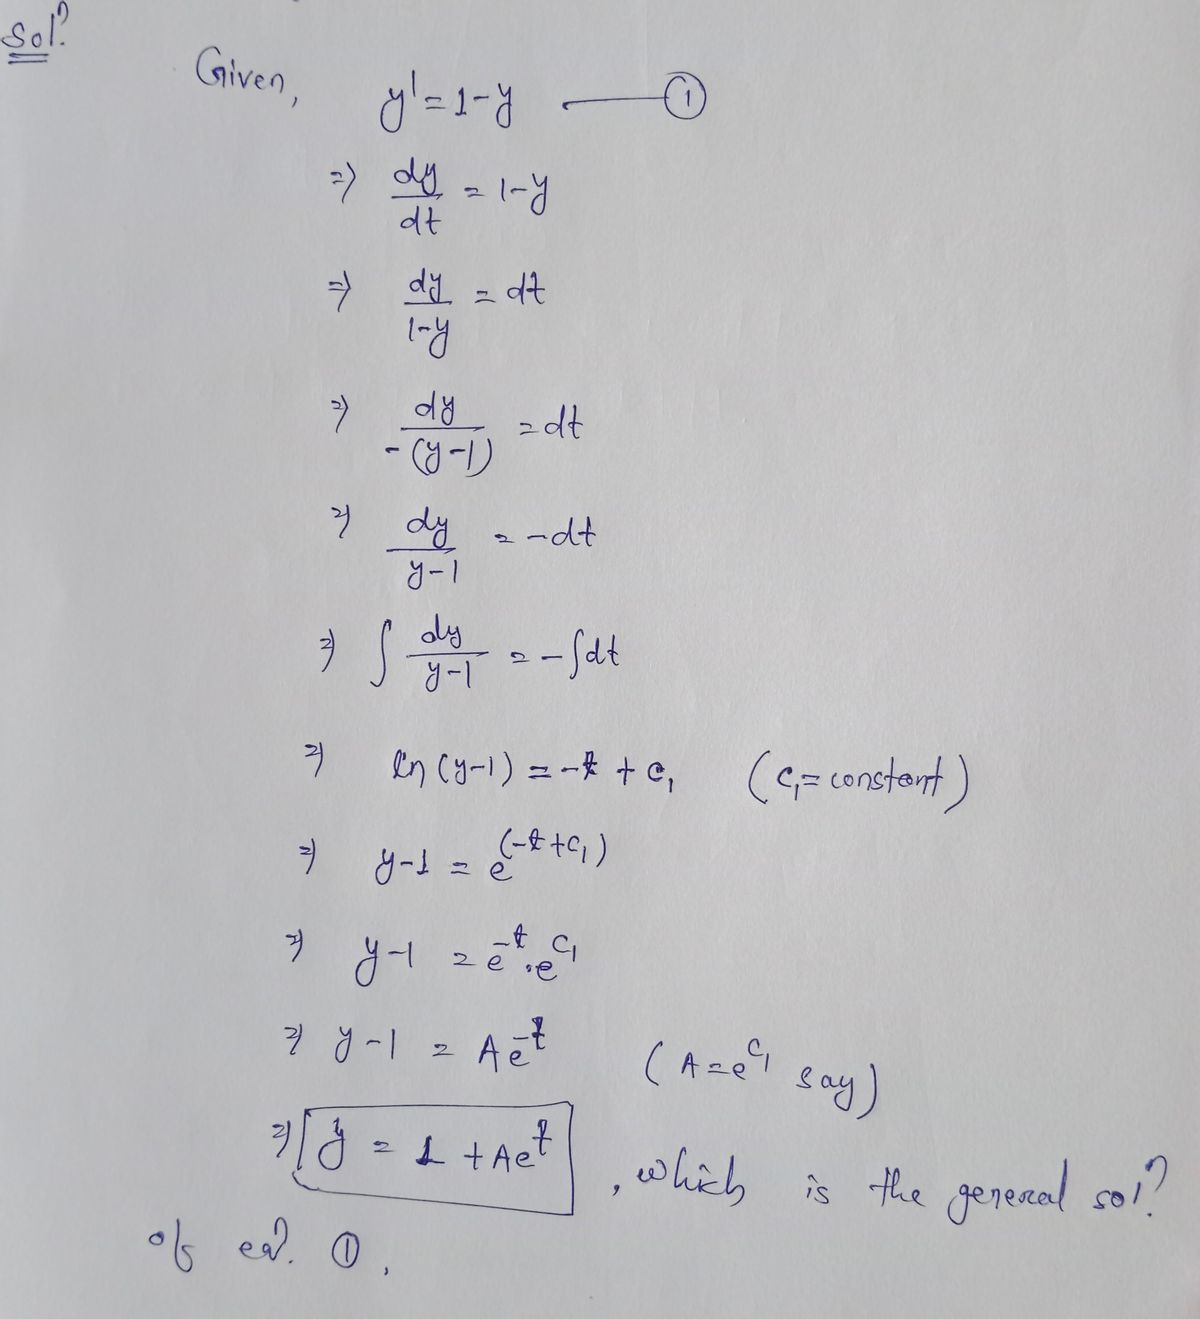 Solⁿ.
Given, y' = 1-y —— ①
=> dy/dt = 1-y
=> dy/1-y = dt
=> dy/-(y-1) = dt
=> dy/y-1 = -dt
=> ∫ dy/y-1 = -∫dt
=> ln (y-1) = -t + c₁ (c₁ = constant)
=> y-1 = e^(-t+c₁)
=> y-1 = e^-t . e^c₁
=> y-1 = Ae^-t (A = e^c₁ say)
=> y = 1 + Ae^t , which is the general solⁿ.
of eqⁿ. ①.